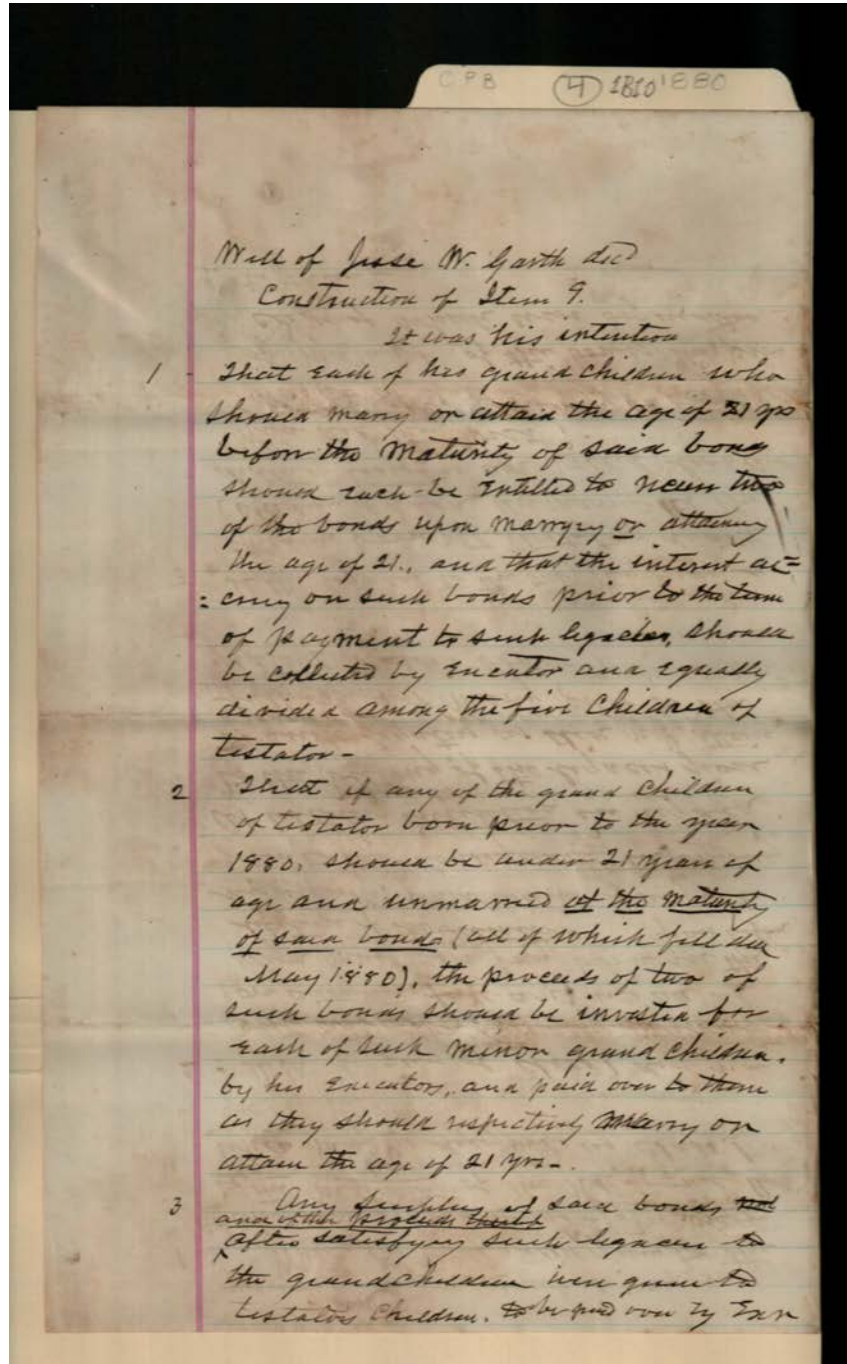 CPB (4) 1810 1880
Will of Jesse W. Garth decd
Construction of Item 9.
It was his intention
1 - That each of his grand children who
should marry or attain the age of 21 yrs
before the maturity of said bonds
should each be entitled to receive two
of the bonds upon marrying or attaining
the age of 21., and that the interest ac=
=cruing on such bonds prior to the time
of payment to such legacies, should
be collected by Executor and equally
divided among the five Children of
testator -
2 That if any of the grand children
of testator born prior to the year
1880, should be under 21 years of
age and unmarried at the maturity
of said bonds (all of which fell due
May 1880), the proceeds of two of
such bonds should be invested for
each of such minor grand children.
by his Executors, and paid over to them
as they should respectively marry or
attain the age of 21 yrs -.
3 Any surplus of said bonds not
and of the proceeds thereof
after satisfying such legacies to
the grandchildren were given to
testators children. to be paid over by Exr